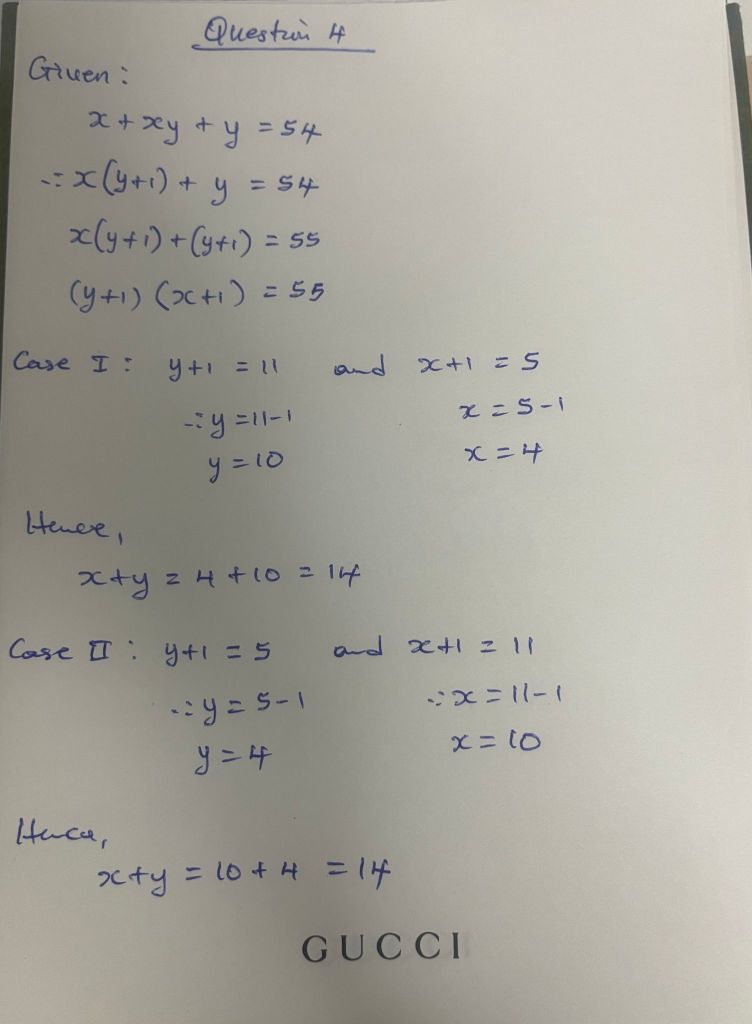 Question 4
Given:
x + xy + y = 54
∴ x(y+1) + y = 54
x(y+1) + (y+1) = 55
(y+1) (x+1) = 55
Case I : y+1 = 11 and x+1 = 5
∴ y = 11-1 x = 5-1
y = 10 x = 4
Hence,
x+y = 4 + 10 = 14
Case II : y+1 = 5 and x+1 = 11
∴ y = 5-1 ∴ x = 11-1
y = 4 x = 10
Hence,
x+y = 10 + 4 = 14
GUCCI